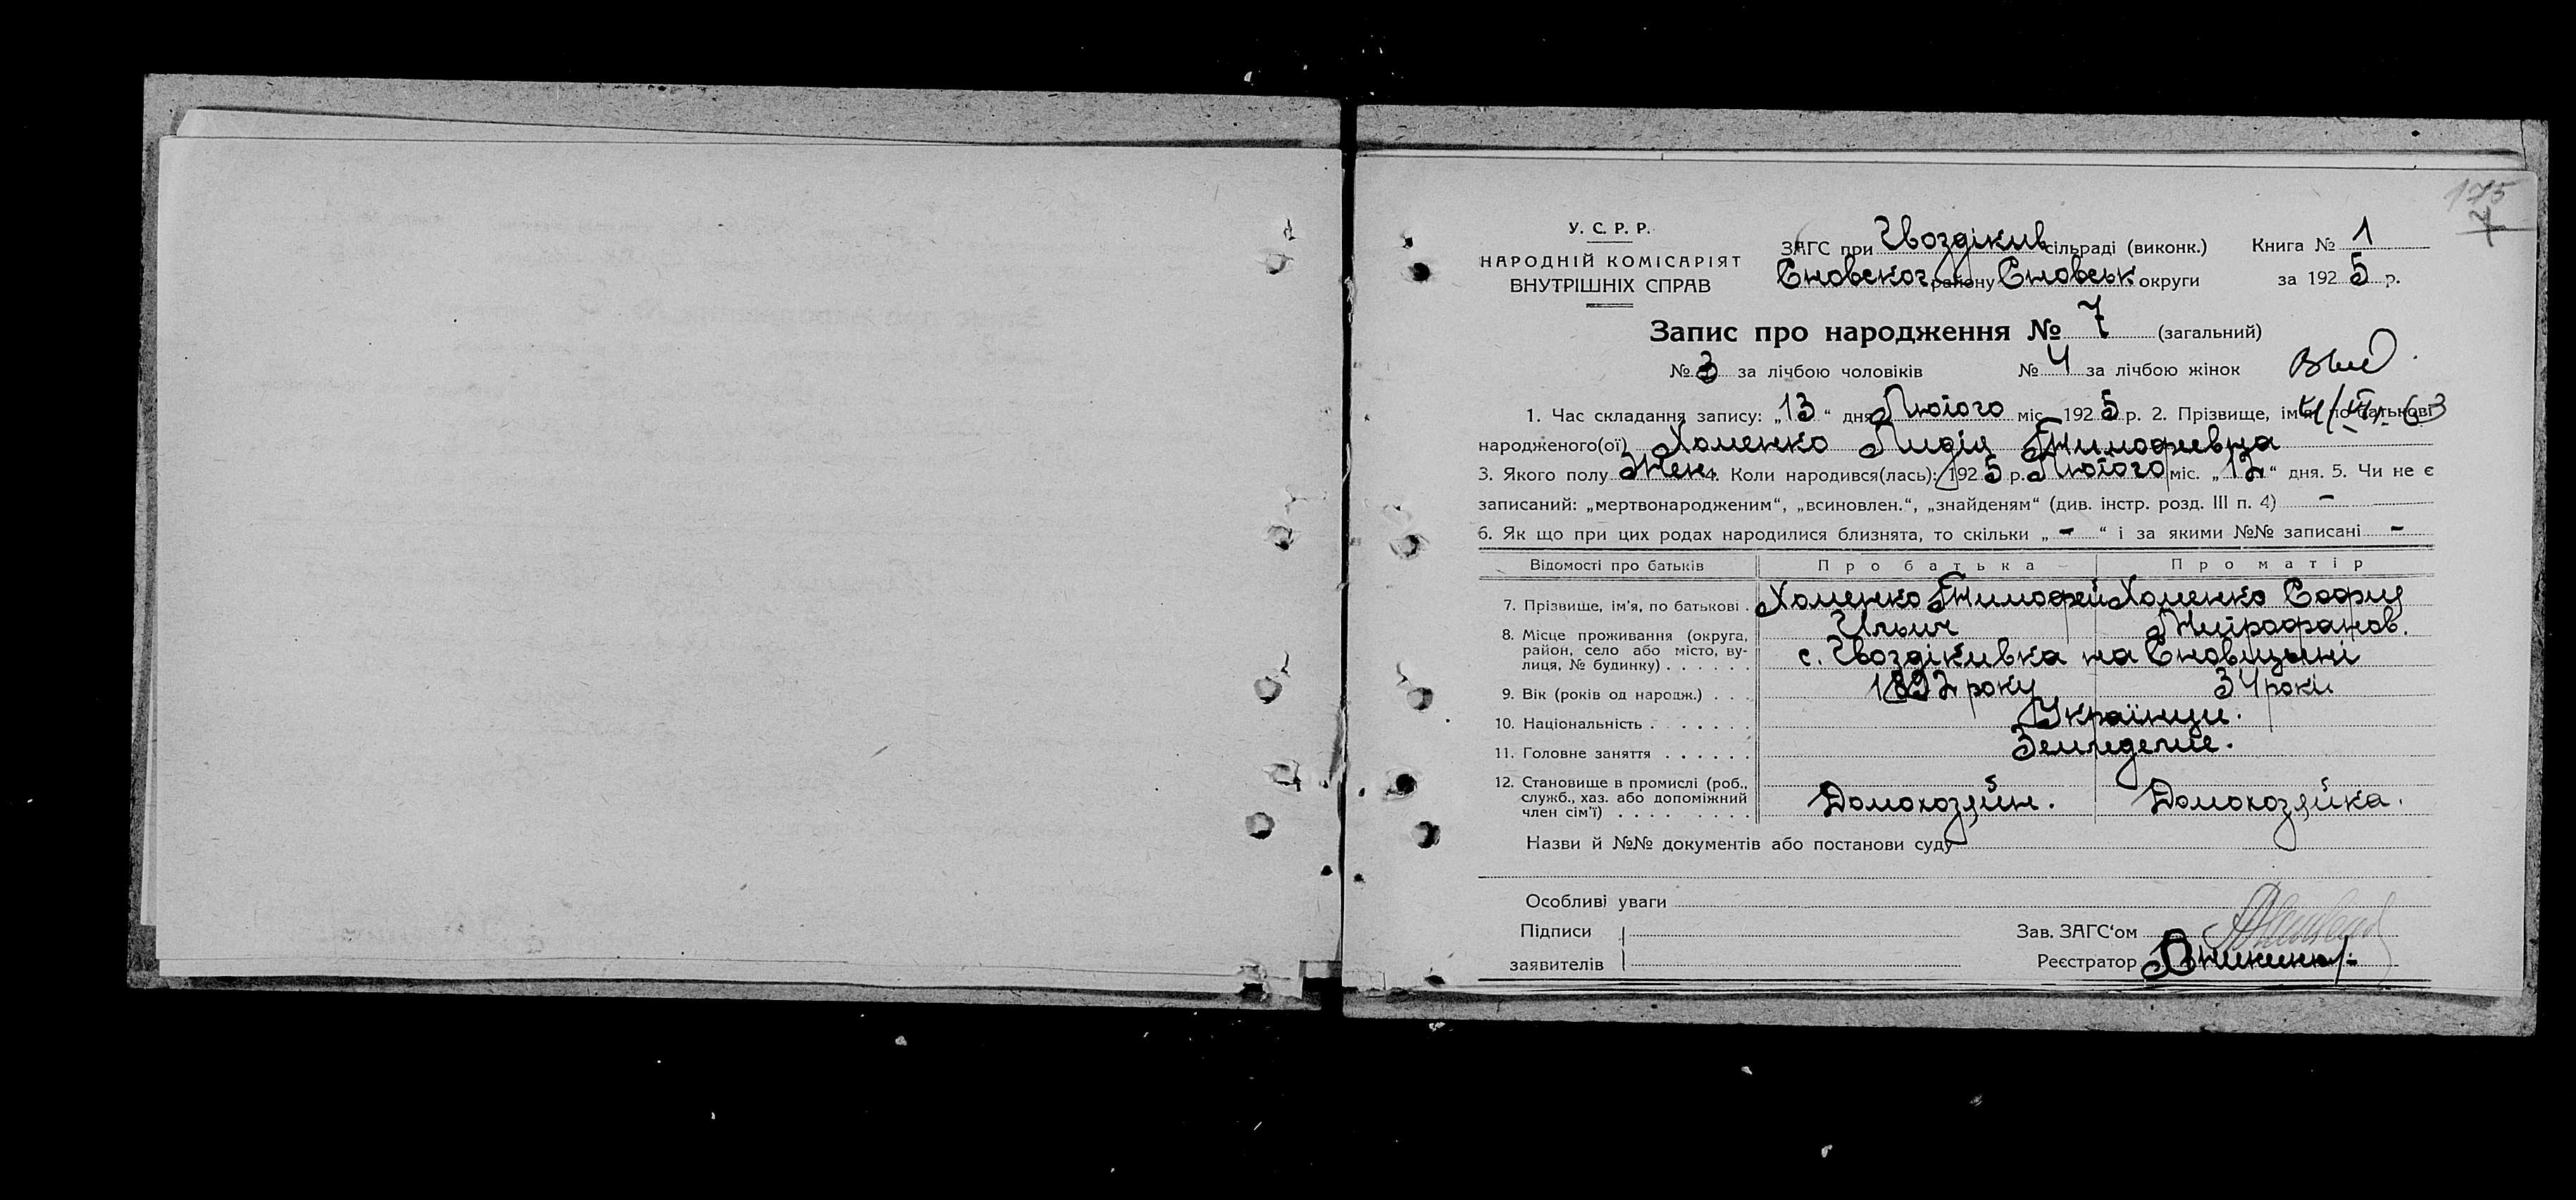 175
7
У. С. Р. Р.
НАРОДНІЙ КОМІСАРІЯТ
ВНУТРІШНІХ СПРАВ
ЗАГС при Гвоздікив сільраді (виконк.) Книга № 1
Сновског району Сновськ округи за 1925 р.
Запис про народження № 7 (загальний)
№ 3 за лічбою чоловіків № 4 за лічбою жінок
1. Час складання запису: „13“ дня Лютого міс. 1925 р. 2. Прізвище, ім'я, по батькові
народженого(ої) Хоменко Лидія Тимофеевна
3. Якого полу Жен. 4. Коли народився(лась): 1925 р. Лютого міс. „12“ дня. 5. Чи не є
записаний: „мертвонародженим“, „всиновлен.“, „знайденям“ (див. інстр. розд. III п. 4) –
6. Як що при цих родах народилися близнята, то скільки „–“ і за якими №№ записані –
Відомості про батьків Про батька Про матір
7. Прізвище, ім'я, по батькові . Хоменко Тимофей Хоменко София
Ильич Митрофанов.
8. Місце проживання (округа,
район, село або місто, ву-
лиця, № будинку) . . . . . . с. Гвоздікивка на Сновщыні
9. Вік (років од народж.) . . . 1892 року 34 роки
10. Національність . . . . . . Українци.
11. Головне заняття . . . . . . Земледелие.
12. Становище в промислі (роб.,
служб., хаз. або допоміжний
член сім'ї) . . . . . . . . Домохозяйн. Домохозяйка.
Назви й №№ документів або постанови суду
Особливі уваги
Підписи
заявителів
Зав. ЗАГС‘ом
Реєстратор